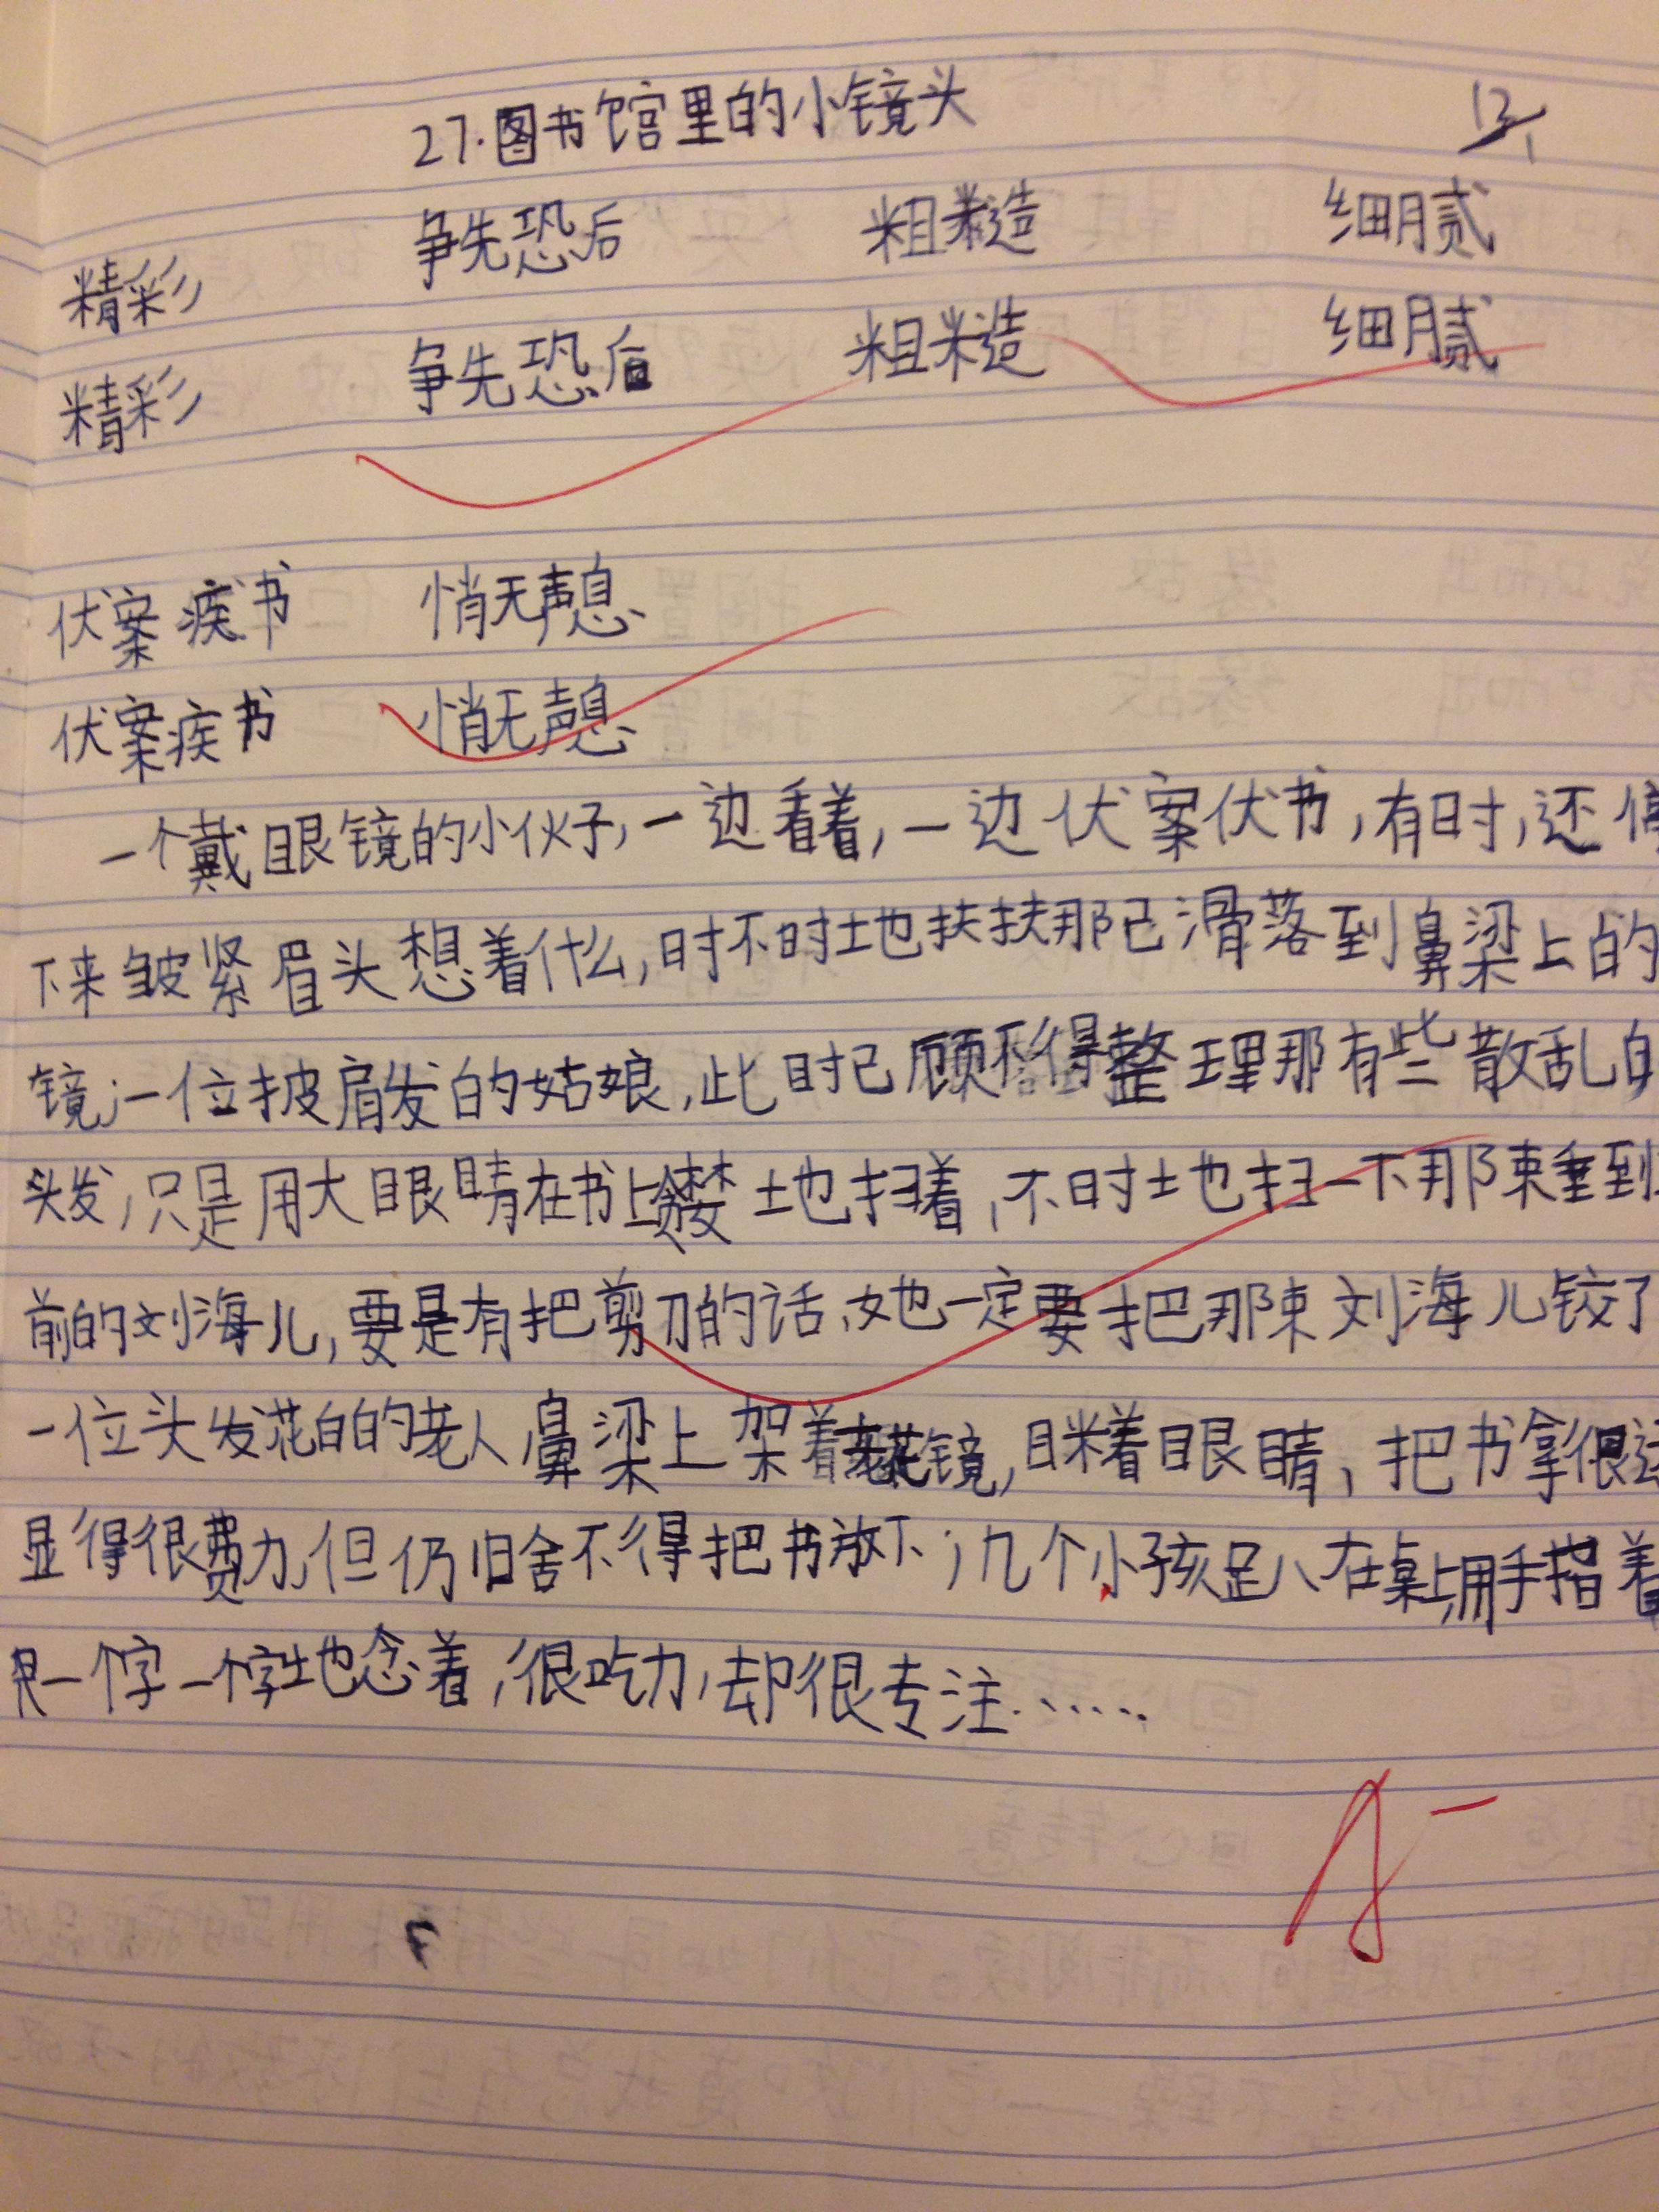 27.图书馆里的小镜头
精彩 争先恐后 粗糙 细腻
精彩 争先恐后 粗糙 细腻
伏案疾书 悄无声息
伏案疾书 悄无声息
一个戴眼镜的小伙子,一边看着,一边伏案伏书,有时,还停
下来皱紧眉头想着什么,时不时地扶扶那已滑落到鼻梁上的
镜;一位披肩发的姑娘,此时已顾不得整理那有些散乱的
头发,只是用大眼睛在书上贪婪地扫着,不时地扫一下那束垂到
前的刘海儿,要是有把剪刀的话,她一定要把那束刘海儿铰了
一位头发花白的老人鼻梁上架着老花镜,眯着眼睛,把书拿很远
显得很费力,但仍旧舍不得把书放下;几个小孩趴在桌上,用手指着
一个字一个字地念着,很吃力,却很专注……
A-